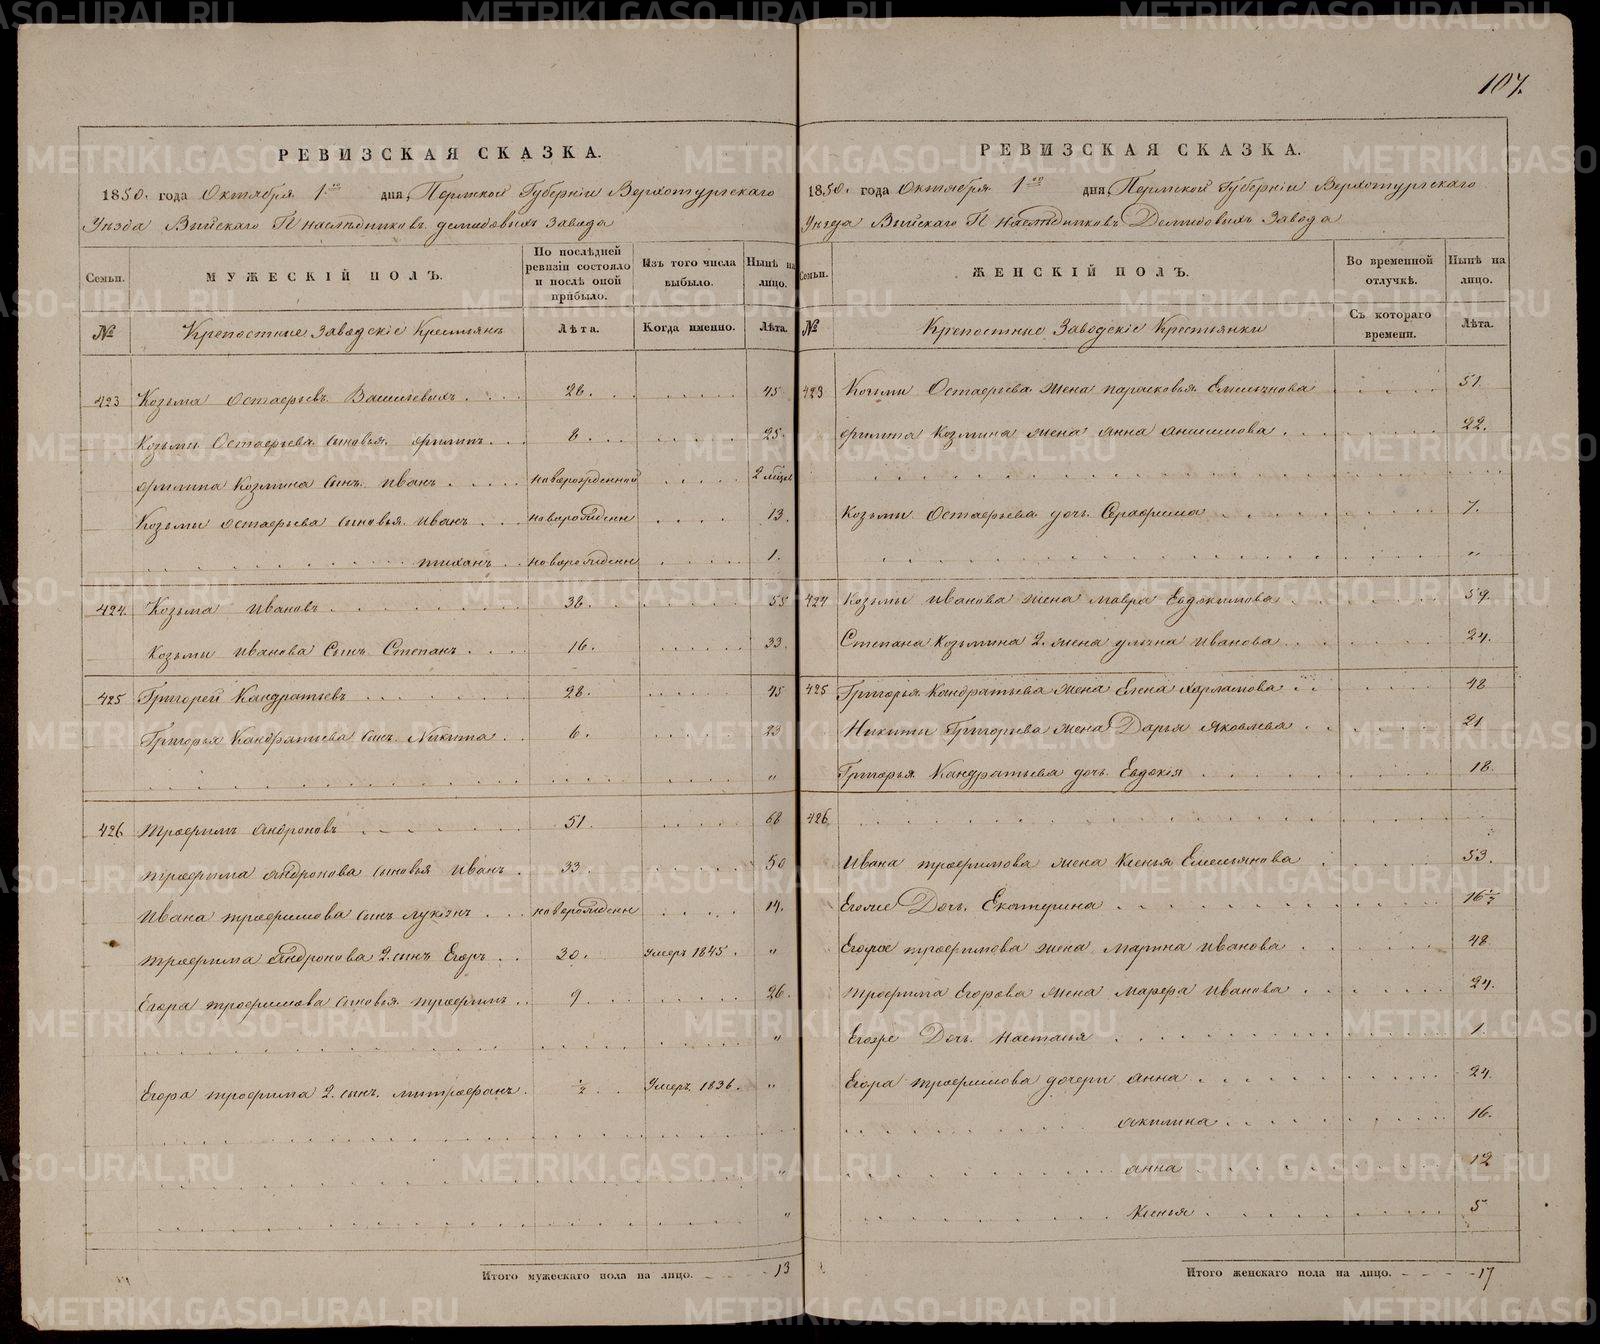 107.
РЕВИЗСКАЯ СКАЗКА.
1850. года Октября 1го дня, Пермской Губерніи Верхотурскаго
Уѣзда Выйскаго Гг наслѣдниковъ демидовыхъ завода
Семьи. МУЖЕСКІЙ ПОЛЪ. По послѣдней ревизіи состояло и послѣ оной прибыло. Изъ того числа выбыло. Нынѣ на лицо.
№ Крепостные Заводскіе Крестьяне Лѣта. Когда именно. Лѣта.
423 Козьма Остафьевъ Васильевыхъ 28. 45
Козьмы Остафьева сыновья филипъ 8 25.
филипа Козмина сынъ иванъ новорожденной 2 мѣсец
Козьмы остафьева сыновья иванъ новорожден 13.
тиханъ новорожден 1.
424. Козьма ивановъ 38. 55
Козьмы иванова Сынъ Степанъ 16. 33.
425 Григорей Кандратьевъ 28. 45
Григорья Кандратьева сынъ Никита 6. 23
"
426. трофимъ андроновъ 51. 68
трофима андронова сыновья иванъ 33. 50
ивана трофимова сынъ лукіянъ новорожден 14.
трофима Андронова 2. сынъ Егоръ 30. Умеръ 1845. "
Егора трофимова сыновья трофимъ 9. 26.
"
Егора трофима 2. сынъ митрофанъ ½ Умеръ 1836. "
"
"
Итого мужескаго пола на лицо. 13
РЕВИЗСКАЯ СКАЗКА.
1850. года Октября 1го дня, Пермской Губерніи Верхотурскаго
Уѣзда Выйскаго Гг наслѣдниковъ Демидовыхъ Завода
Семьи. ЖЕНСКІЙ ПОЛЪ. Во временной отлучкѣ. Нынѣ на лицо.
№ Крепостные Заводскіе Крестьянки Съ котораго времени. Лѣта.
423 Козьмы Остафьева жена парасковья Емельянова 51.
филипа Козмина жена анна анисимова 22.
Козьмы Остафьева дочь Серафима 7.
"
424 Козьмы иванова жена мавра Евдокимова 59.
Степана Козьмина 2. жена улина иванова 24.
425 Григорья Кандратьева жена Елена харламова 48
Никиты Григорьева жена Дарья яковлева 21
Григорья Кандратьева дочь Евдокія 18.
426
Ивана трофимова жена Ксенья Емельянова 53.
Егоже Дочь Екатерина 16½
Егора трофимова жена марина иванова 48
трофима Егорова жена марфа иванова 24.
Егоже Дочь настасья 1
Егора трофимова дочери анна 24.
акилина 16.
анна 12
Ксенья 5
Итого женскаго пола на лицо. 17
METRIKI.GASO-URAL.RU